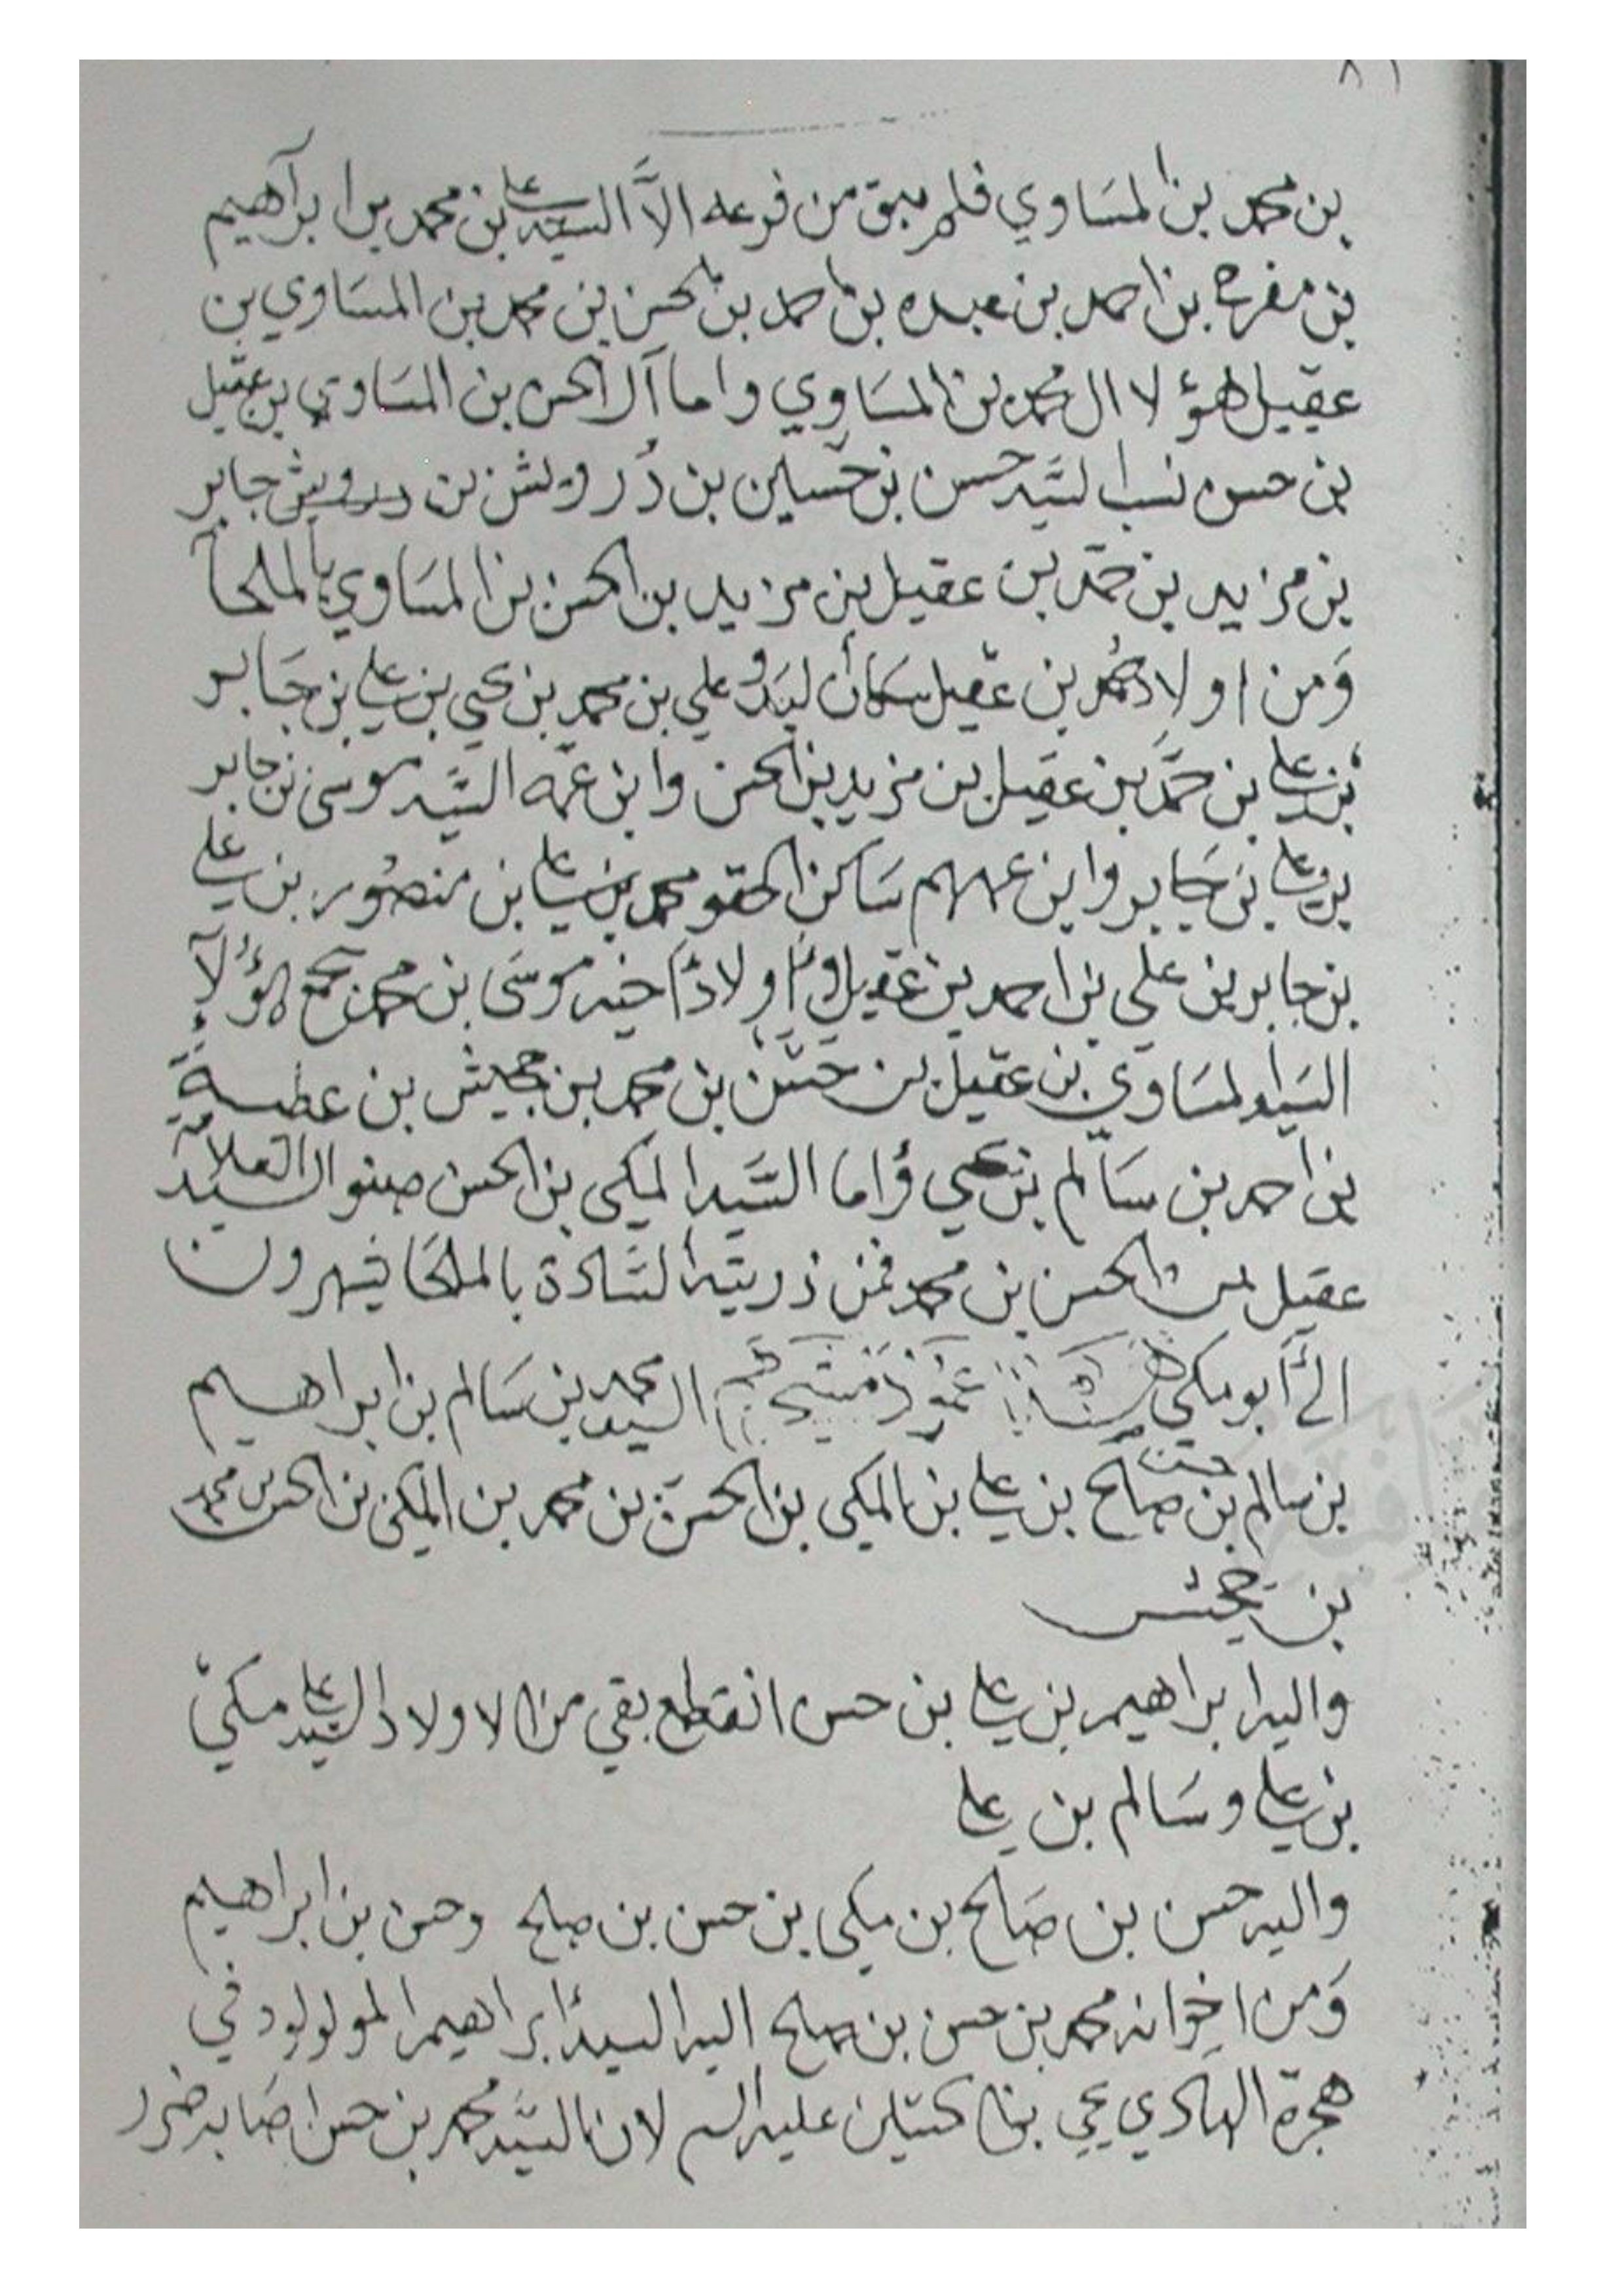 بن محمد بن المساوي فلم يبق من فرعه الا السيد علي بن محمد بن ابراهيم
بن مفرح بن احمد بن عبده بن احمد بن الحسن بن محمد بن المساوي بن
عقيل هؤلا ال محمد بن المساوي واما آل الحسن بن المساوي بن عقيل
بن حسن نسب السَّيد حسن بن حسين بن دُرويش بن درويش جابر
بن مزيد بن حمد بن عقيل بن مزيد بن الحسن بن المسَاوي بالملحآ
وَمن اولاد بن عقيل سكان علي بن محمد بن يحيى بن علي بن جَابر
بن علي بن حمَد بن عقيل بن مزيد بن الحسن وابن عمه السَّيد موسى بن جابر
بن علي بن جَابر وابن عمهم سَاكن الحقو محمد بن علي بن منصُور بن علي
بن جابر بن علي بن احمد بن عقيل اولاد اخيه موسَى بن محمد يجمع هؤلآ
السَيد المسَاوي بن عقيل بن حسَن بن محمد بن جحيش بن عطية
بن احمد بن سَالم بن يحيى وَاما السَّيد المكي بن الحسن صنو السيد العلامة
عقيل بن الحسن بن محمد فمن ذريته السَّادة بالملحَا يشهرون
إلى أبو مكي السيد محمد بن سَالم بن ابراهيم
بن سالم بن حسن صالح بن علي بن المكي بن الحسن بن محمد بن المكي بن الحسن بن محمد
بن جحيش
واليه ابراهيم بن علي بن حسن انقطع بقي من الاولاد السيد علي مكي
بن علي وسَالم بن علي
واليه حسن بن صَالح بن مكي بن حسن بن صالح وحسن بن ابراهيم
وَمن اخوانه محمد بن حسن بن صالح اليه السيد ابراهيم المولولود في
هجرة الهادي يحيى بن الحسين عليه السلم لان السَّيد محمد بن حسن اصَابه ضرر